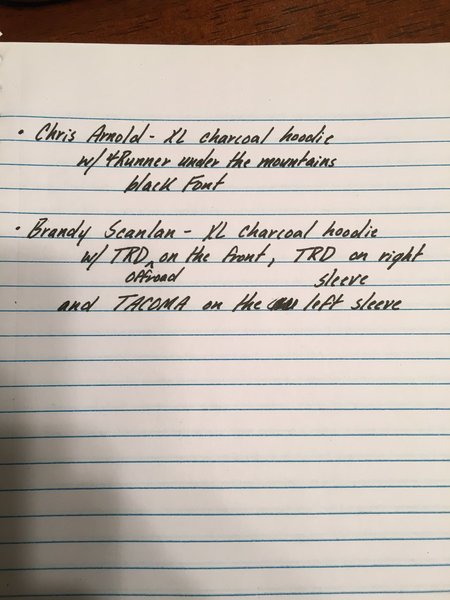 • Chris Arnold - XL charcoal hoodie
w/ 4Runner under the mountains
black Font
• Brandy Scanlan - XL charcoal hoodie
w/ TRD ^ on the front, TRD on right
offroad sleeve
and TACOMA on the left sleeve